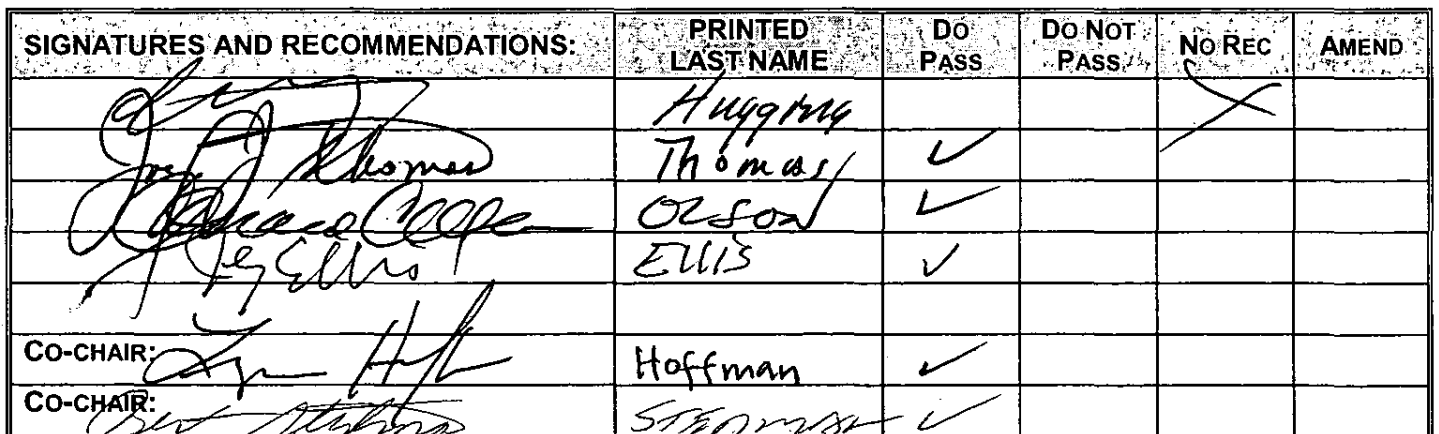 SIGNATURES AND RECOMMENDATIONS: PRINTED LAST NAME DO PASS DO NOT PASS NO REC AMEND
Huggins X
Thomas Thomas ✓
Olson ✓
Ellis ELLIS ✓
CO-CHAIR: Hoffman ✓
CO-CHAIR: ✓